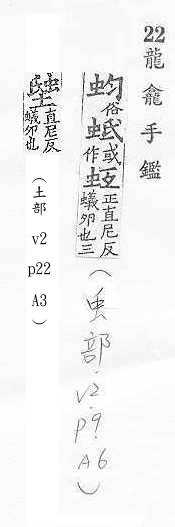 22龍龕手鑑
俗蚳或作正直尼反蟻夘也三
(虫部.V2.P9.A6)
直尼反蟻夘也
(土部 v2 p22 A3)